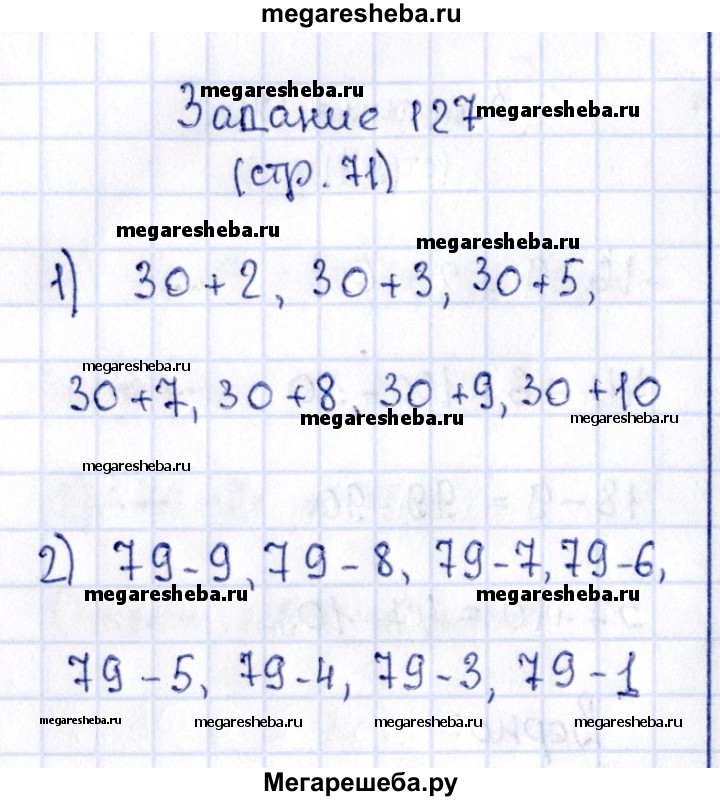 megaresheba.ru
megaresheba.ru
Задание 127 megaresheba.ru
(стр. 71)
megaresheba.ru megaresheba.ru
1) 30+2, 30+3, 30+5,
megaresheba.ru
30+7, 30+8, 30+9, 30+10
megaresheba.ru megaresheba.ru
megaresheba.ru
2) 79-9, 79-8, 79-7, 79-6,
megaresheba.ru megaresheba.ru
79-5, 79-4, 79-3, 79-1
megaresheba.ru megaresheba.ru megaresheba.ru megaresheba.ru
Мегарешеба.ру